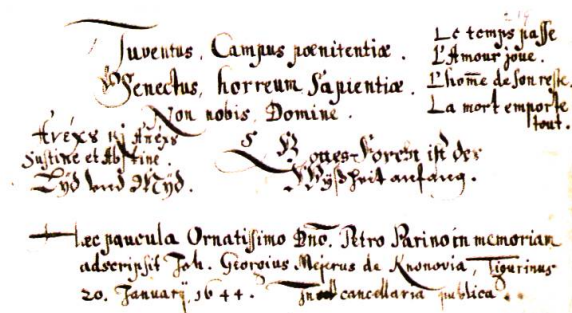 Juventus, Campus pœnitentiæ.
Senectus, horreum Sapientiæ.
Non nobis, Domine.
Le temps passe
L'Amour joue.
L'hom̄e de son reste.
La mort emporte
tout.
Ανέχȣ κ̀ Απέχȣ
Sustine et Abstine.
Lÿd und Mÿd.
Gottes-Forcht ist der
Wÿsheit anfang.
Hæc paucula Ornatissimo Dn̄o. Petro Parino in memoriam
adscripsit Joh. Georgius Meserus de Knonovia, Tigurinus
20. Januarÿ, 1644. cancellaria publica.